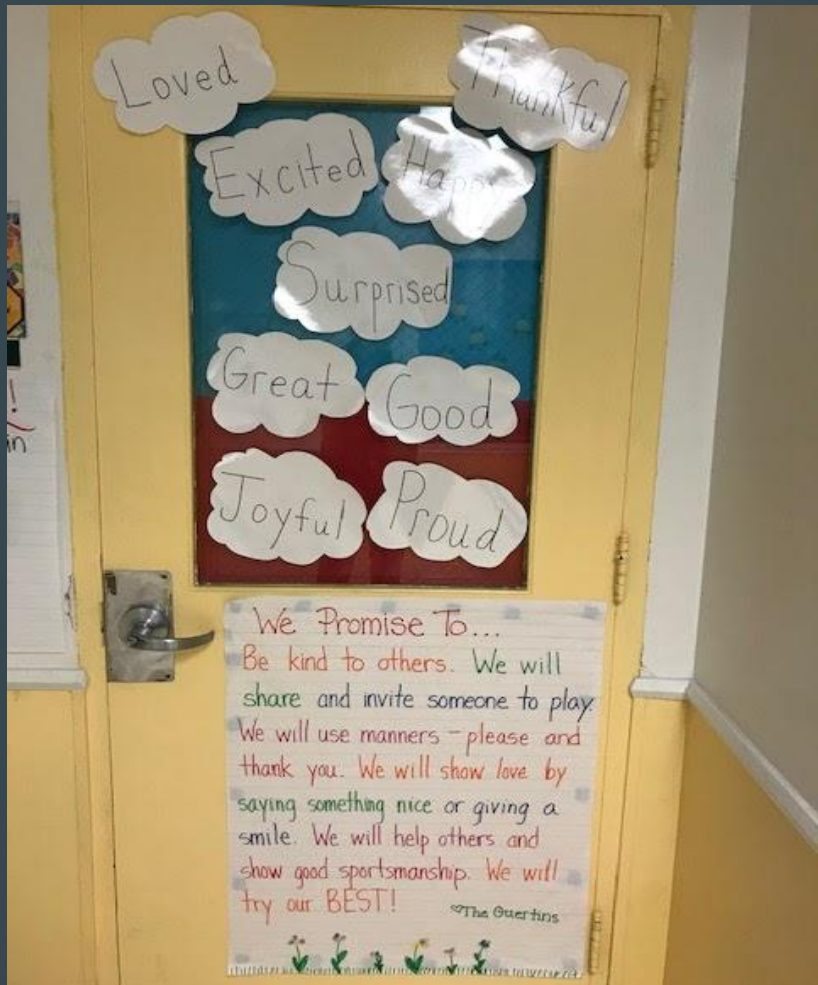 Loved
Thankful
Excited
Happy
Surprised
Great
Good
Joyful
Proud
!
in
We Promise To...
Be kind to others. We will
share and invite someone to play.
We will use manners - please and
thank you. We will show love by
saying something nice or giving a
smile. We will help others and
show good sportsmanship. We will
try our BEST!
♡The Guertins